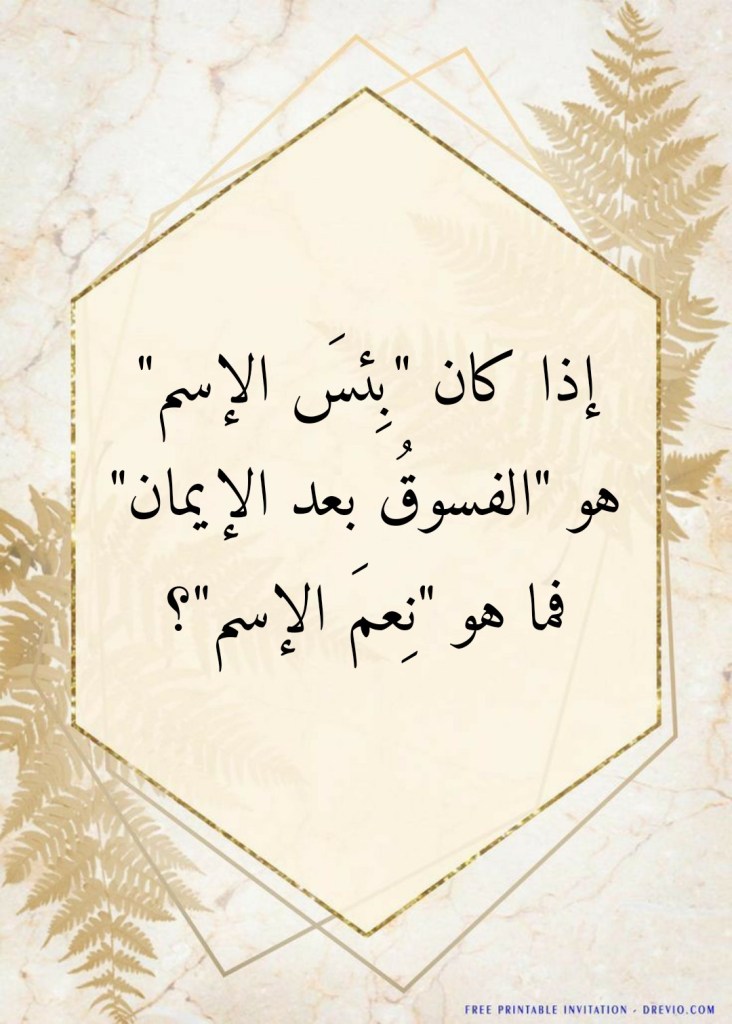 إذا كان "بِئسَ الإسم"
هو "الفسوقُ بعد الإيمان"
فما هو "نِعمَ الإسم"؟
FREE PRINTABLE INVITATION - DREVIO.COM